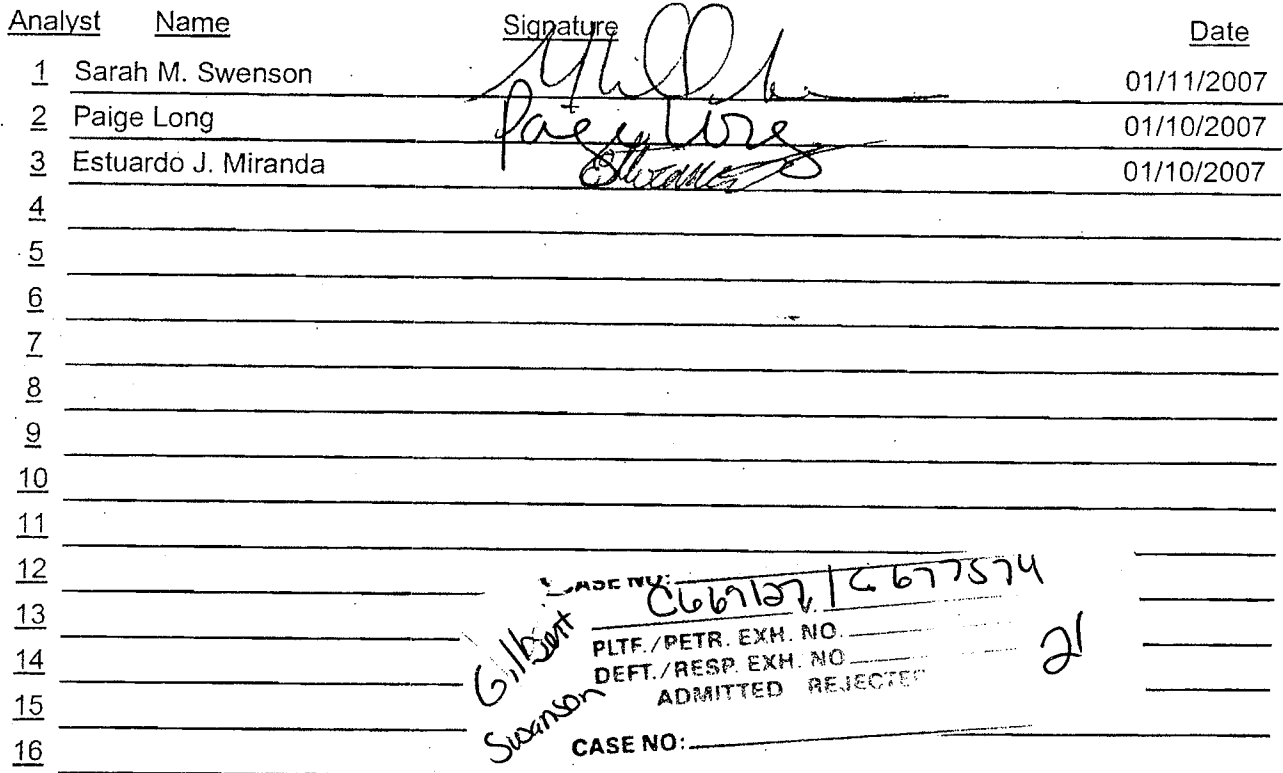 Analyst Name Signature Date
1 Sarah M. Swenson 01/11/2007
2 Paige Long Paige Long 01/10/2007
3 Estuardo J. Miranda 01/10/2007
4
5
6
7
8
9
10
11
12
13
14
15
16
CASE NO:
C667127 / C677574
V.
PLTF./PETR. EXH. NO.
DEFT./RESP. EXH. NO 21
ADMITTED REJECTED
CASE NO:
Gilbert
Swanson